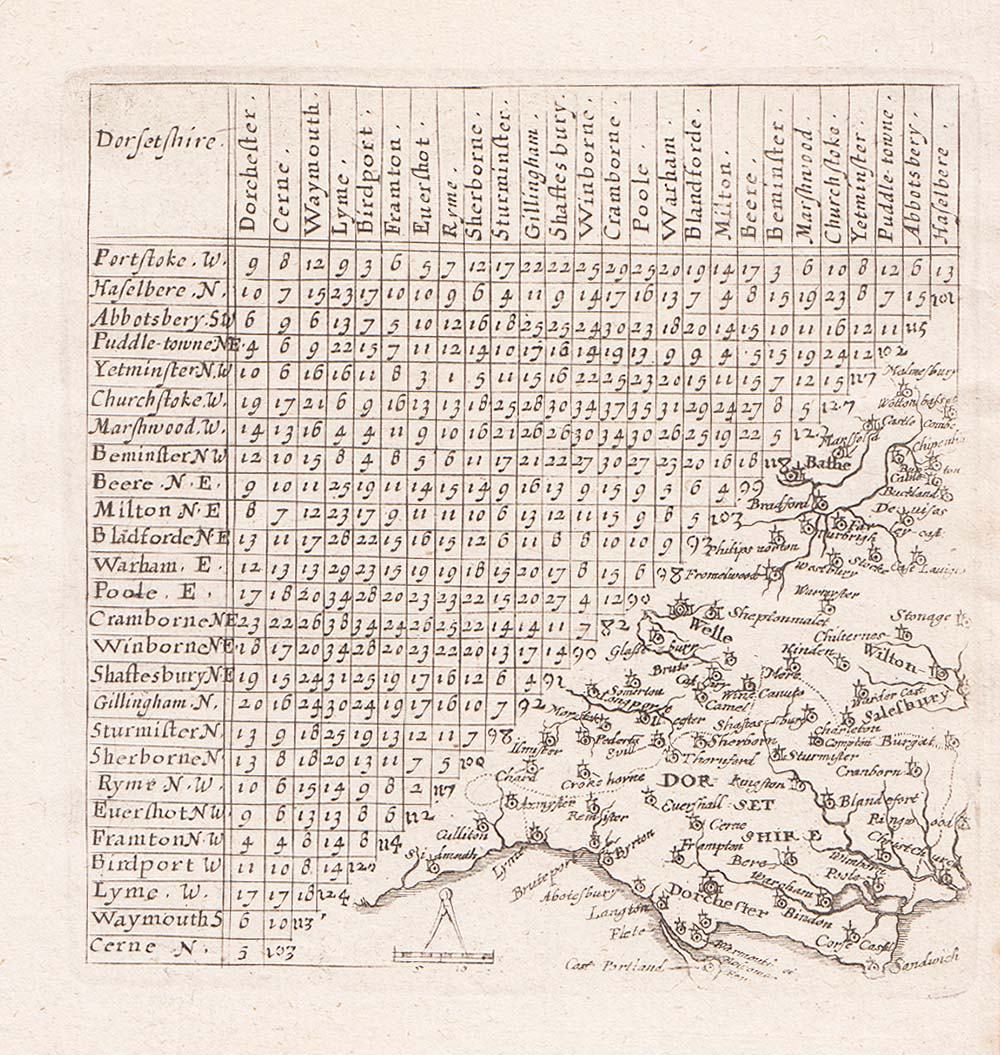 Dorsetshire.
Dorchester.
Cerne.
Waymouth.
Lyme.
Birdport.
Framton.
Euershot
Ryme.
Sherborne.
Sturminster.
Gillingham.
Shaftesbury.
Winborne.
Cramborne.
Poole.
Warham.
Blandforde.
Milton.
Beere.
Beminster.
Marshwood.
Churchstoke.
Yetminster.
Puddle-towne.
Abbotsbery.
Haselbere.
Portstoke. W. 9 8 12 9 3 6 5 7 12 17 22 22 25 29 25 20 19 14 17 3 6 10 8 12 6 13
Haselbere. N. 10 7 15 23 17 10 10 9 6 4 11 9 14 17 16 13 7 4 8 15 19 23 8 7 15 101
Abbotsbery. SW 6 9 6 13 7 5 10 12 16 18 25 25 24 30 23 18 20 14 15 10 11 16 12 11 115
Puddle-towne NE. 4 6 9 22 15 7 11 12 14 10 17 16 14 19 13 9 9 4 5 15 19 24 12 102
Yetminster N.W 10 6 16 16 11 8 3 1 5 11 15 16 22 25 23 20 15 11 15 7 12 15 117
Churchstoke. W. 19 17 21 6 9 16 13 13 18 25 28 30 34 37 35 31 29 24 27 8 5 127
Marshwood. W. 14 13 16 4 4 11 9 10 16 21 26 26 30 34 30 26 25 19 22 5 122
Beminster N W 12 10 15 8 4 8 5 6 11 17 21 22 27 30 27 23 20 16 18 118
Beere. N. E. 9 10 11 25 19 11 14 15 14 9 16 13 9 15 9 5 6 4 99
Milton N. E 8 7 12 23 17 9 11 11 10 6 13 12 11 15 9 8 5 103
Blādforde N.E 13 11 17 28 22 15 16 15 12 6 11 8 8 10 10 9 97
Warham. E. 12 13 13 29 23 15 19 19 18 15 20 17 8 15 6 98
Poole. E. 17 18 20 34 28 20 23 23 22 15 20 27 4 12 90
Cramborne NE 23 22 26 38 34 24 26 25 22 14 14 11 7 82
Winborne NE. 18 17 20 34 28 20 23 22 20 13 17 14 90
Shaftesbury NE 19 15 24 31 25 19 17 16 12 6 4 91
Gillingham. N. 20 16 24 30 24 19 17 16 10 7 92
Sturmister N. 13 9 18 25 19 13 12 11 7 98
Sherborne N 13 8 18 20 13 11 7 5 100
Ryme N. W. 10 6 15 14 9 8 2 117
Euershot NW 9 6 13 13 8 6 112
Framton N W 4 4 8 14 8 114
Birdport W 11 10 8 14 120
Lyme. W. 17 17 18 124
Waymouth S 6 10 113
Cerne N. 5 103
Malmesbury
Castle Combe
Chipenhā
Bathe
Bradford
Buckland
Deuises
Philips norton
Fromelwood
Westbury
Warmyster
Stonage
Welle
Sheptonmalet
Chilternes
Wilton
Glasēbury
Bruto
Hinden
Mere
Somerton
Longport
Camel
Warder Cast
Salesbury
Ilmister
Shaftesbury
Charleton
Compton
Burgat
Sherborn
Thornford
Sturmister
Cranborn
Chard
DOR SET SHIRE
Axmyster
Euershall
Blandefort
Cerne
Culliton
Sidmouth
Lyme
Byrton
Frampton
Bere
Bruteport
Abotesbury
Dorchester
Wareham
Poole
Langton
Flete
Bindon
Corfe Castel
Cast Portland
Sandwich
5 10